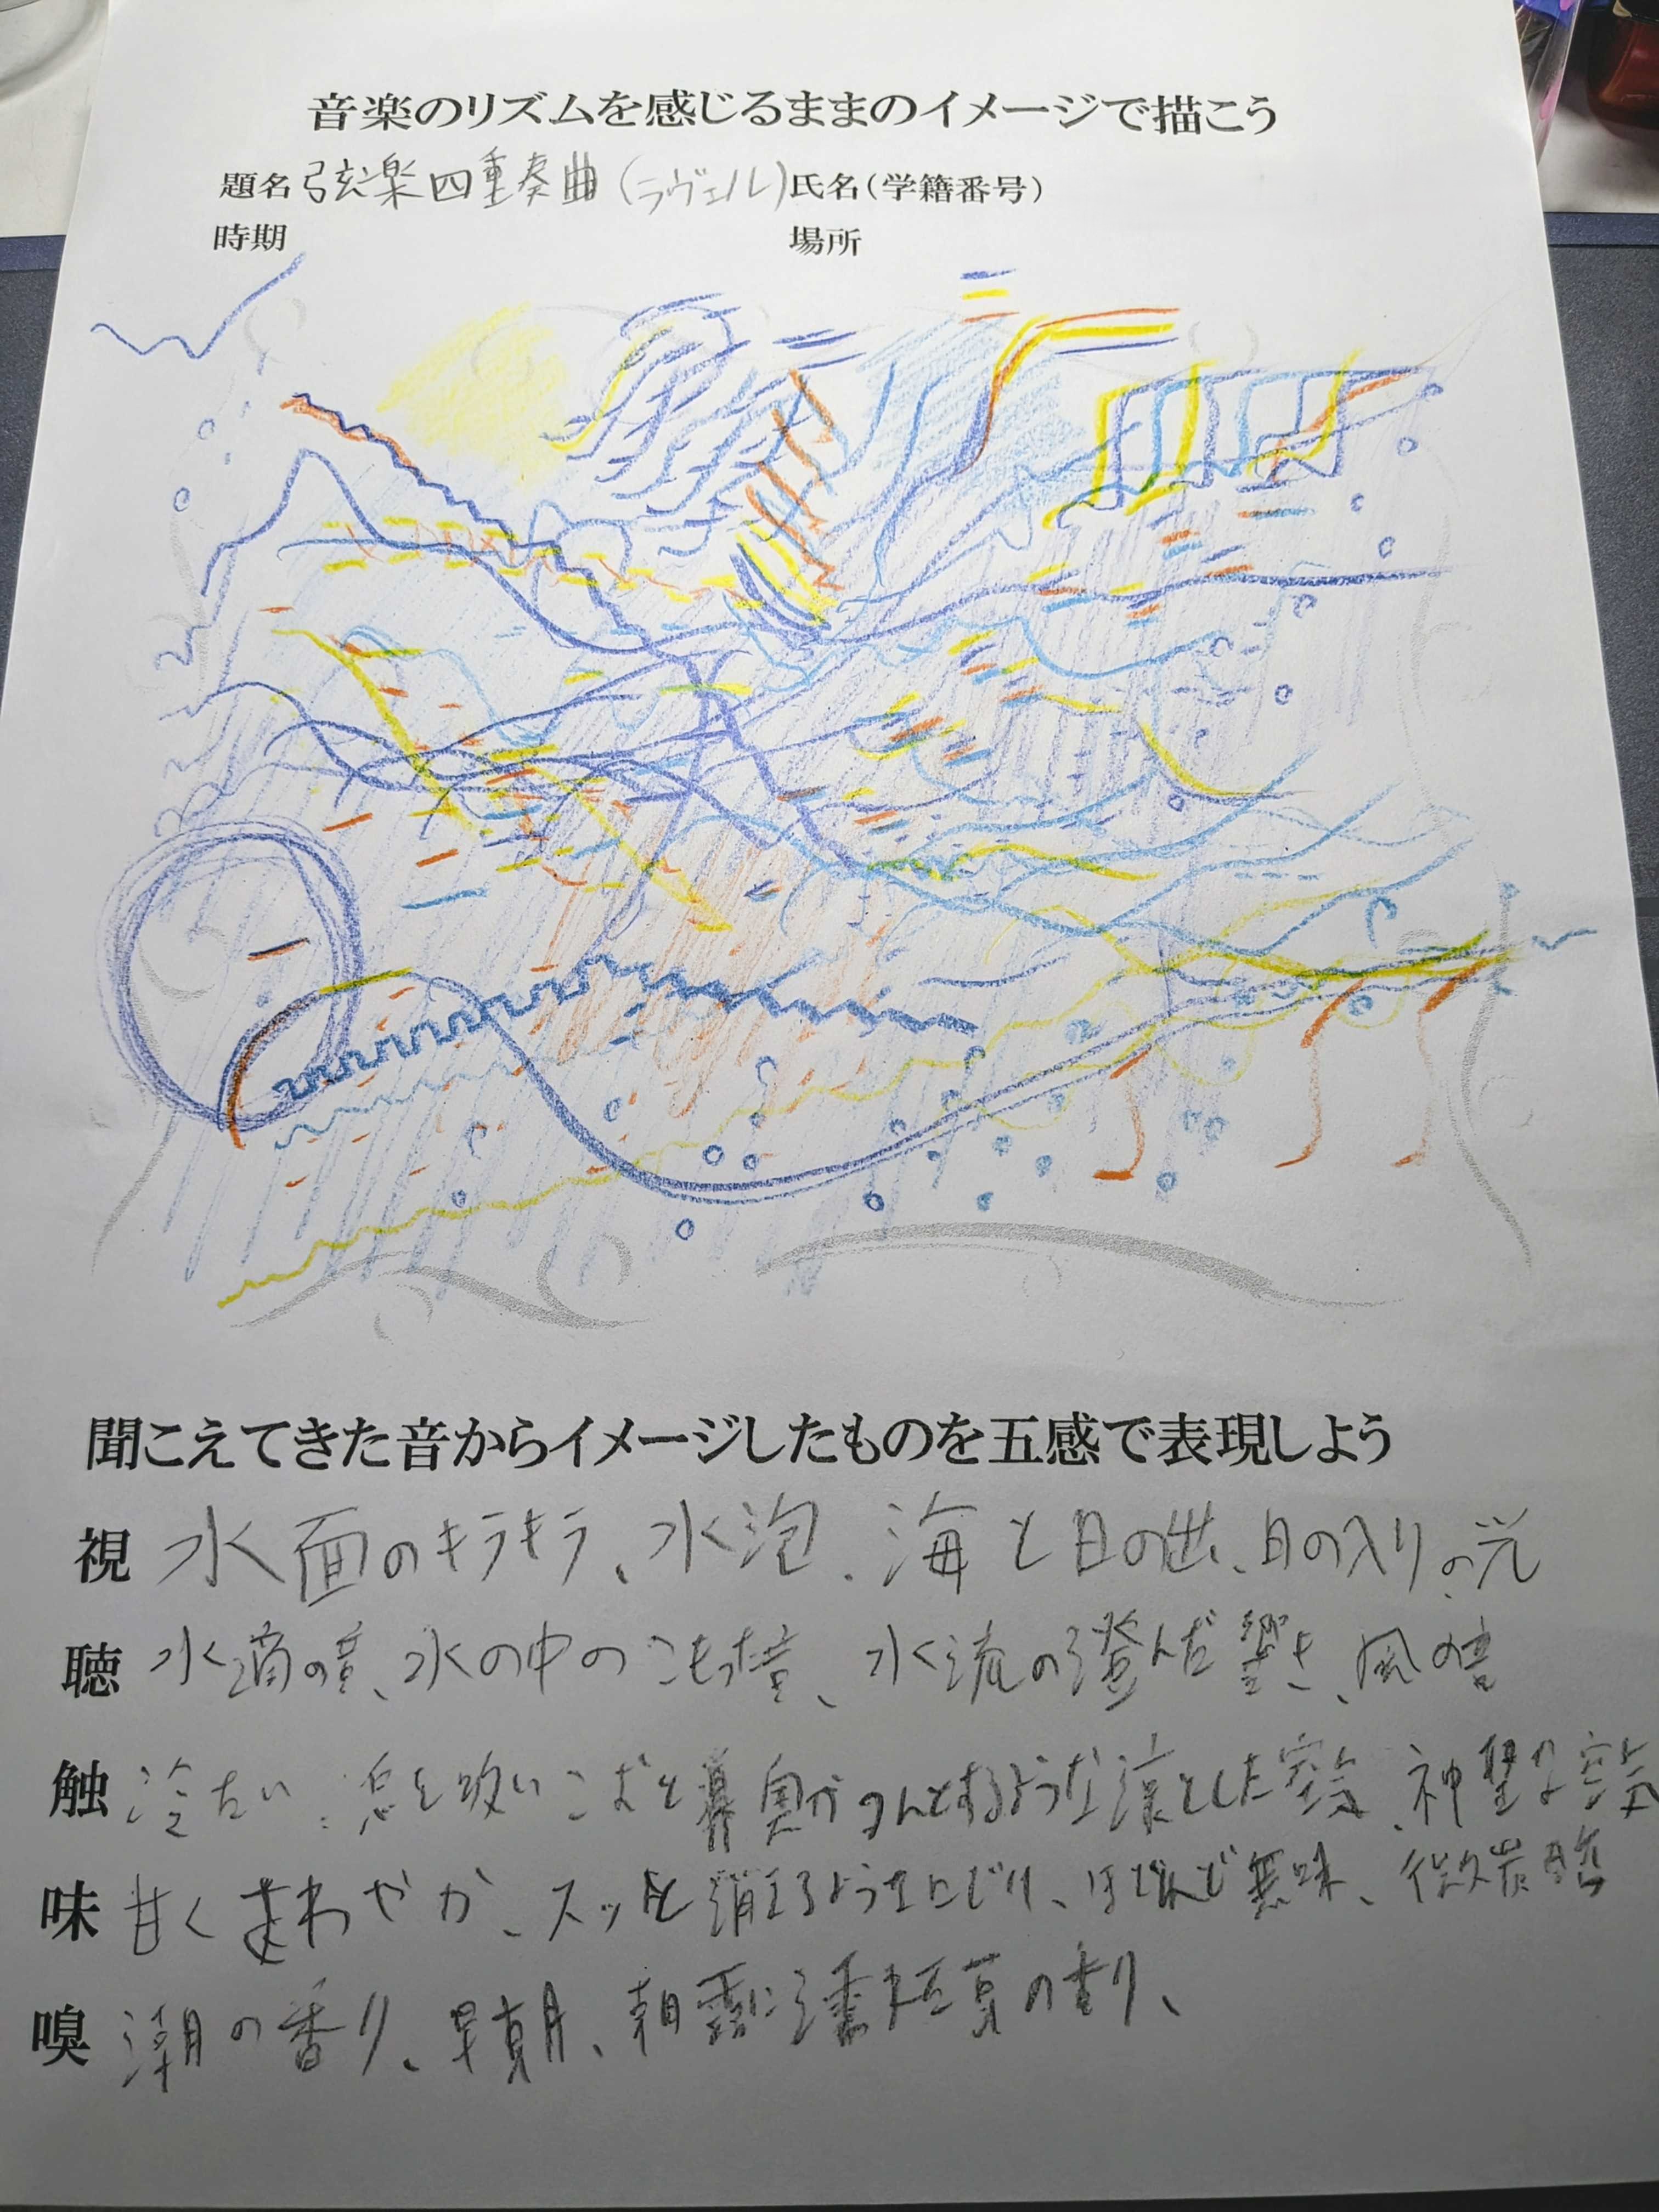 音楽のリズムを感じるままのイメージで描こう
題名 弦楽四重奏曲(ラヴェル) 氏名(学籍番号)
時期 場所
聞こえてきた音からイメージしたものを五感で表現しよう
視 水面のキラキラ、水泡、海と日の出、日の入りの光
聴 水滴の音、水の中のこもった音、水流の澄んだ響き、風の音
触 冷たい、息を吸いこむと鼻奥がつんとするような凛とした空気、神聖な空気
味 甘くまわやか、スッと消えるようなにじり、ほどんど無味、微炭酸
嗅 潮の香り、早朝、朝露に濡れた草の香り、